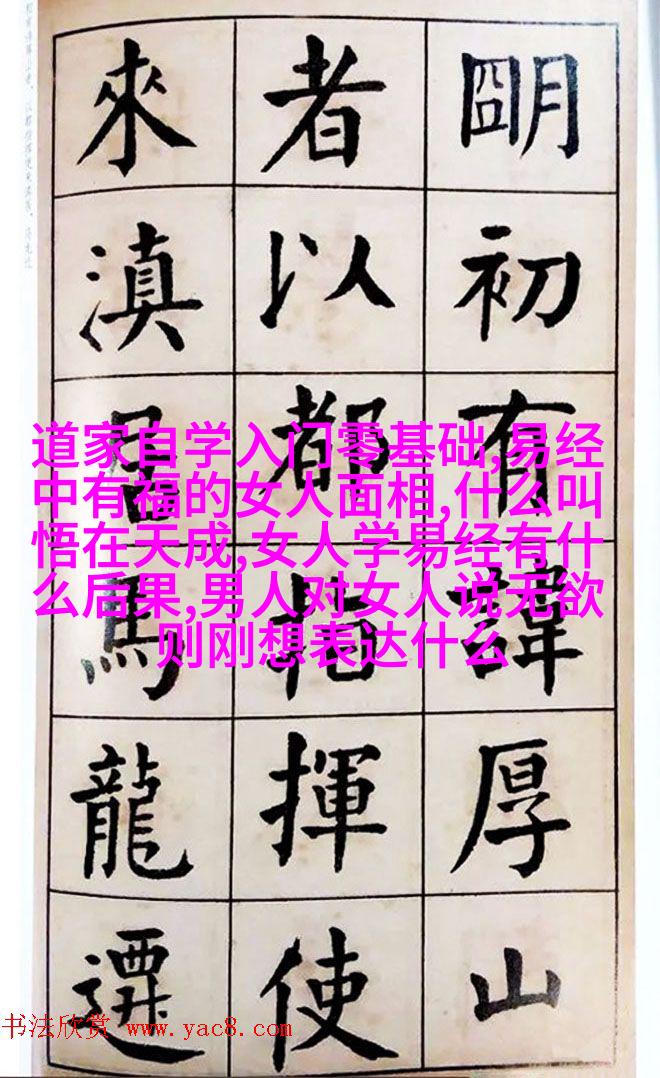 朙初有諱厚山
者以都指揮使
來滇居馬龍遷
道家自学入门零基础,易经
中有福的女人面相,什么叫
悟在天成,女人学易经有什
么后果,男人对女人说无欲
则刚想表达什么
书法欣赏 www.yac8.com